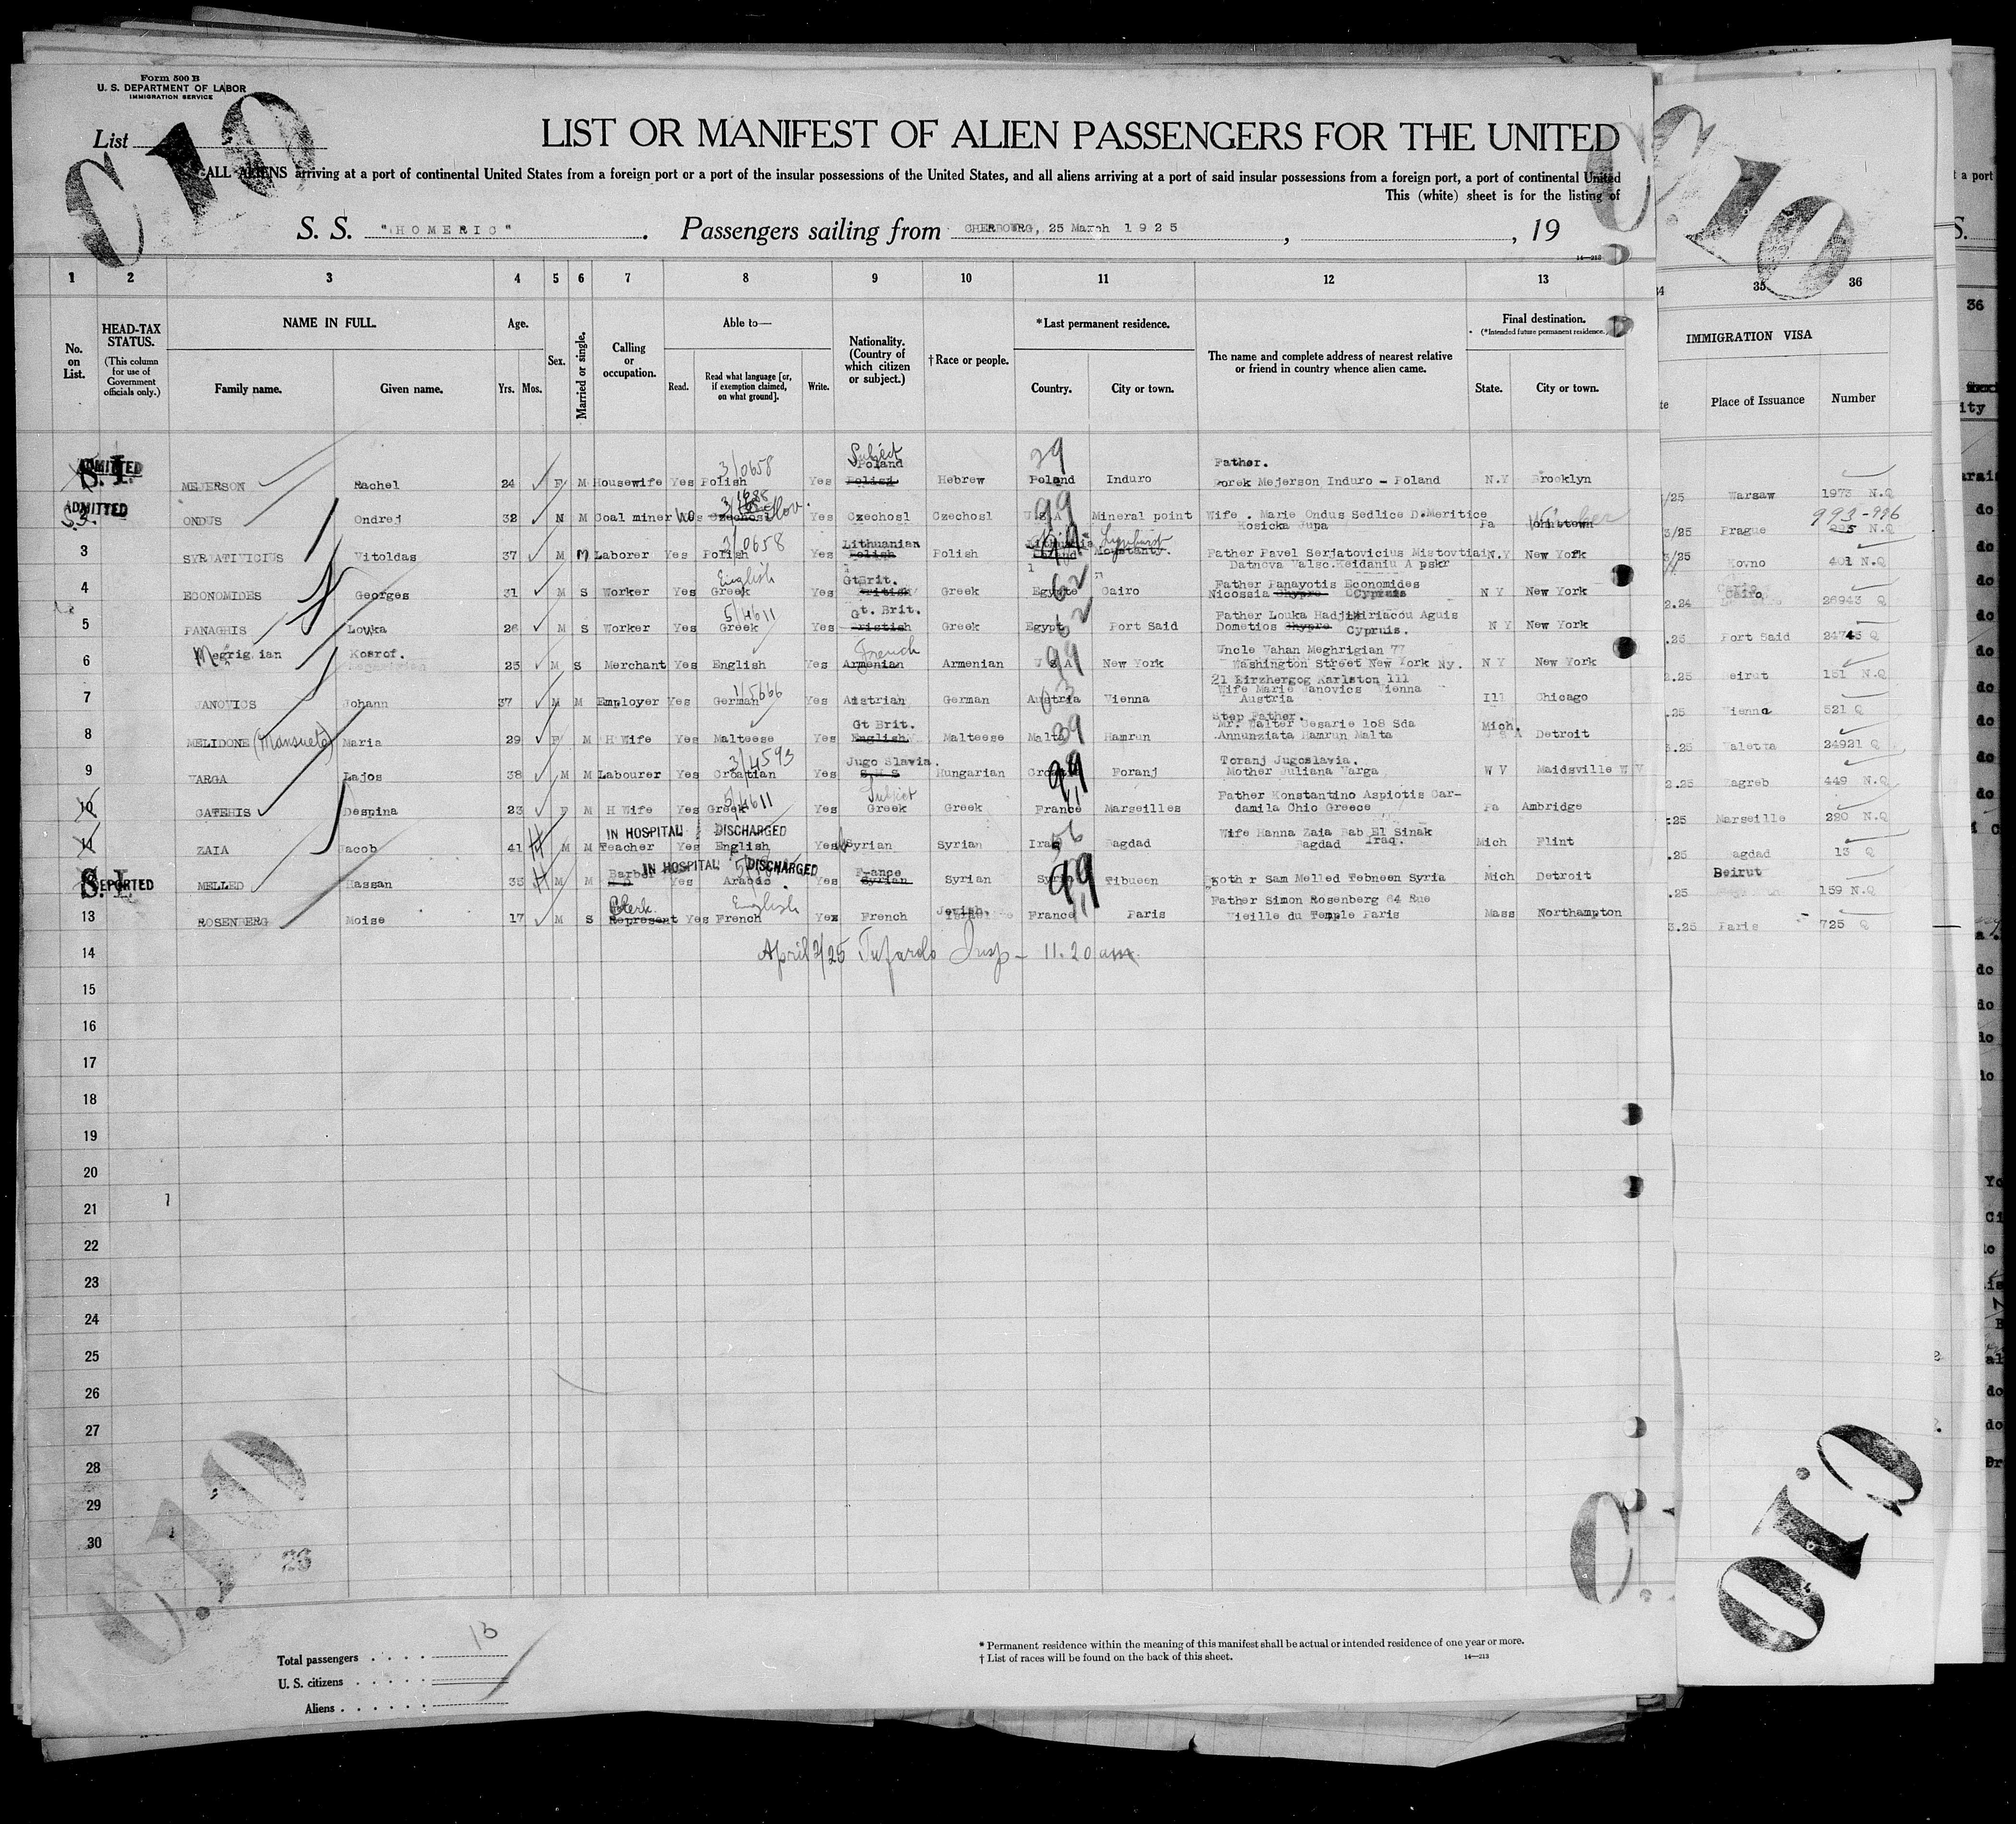 Form 500 B
U. S. DEPARTMENT OF LABOR
IMMIGRATION SERVICE
List
C 10
LIST OR MANIFEST OF ALIEN PASSENGERS FOR THE UNITED
ALL ALIENS arriving at a port of continental United States from a foreign port or a port of the insular possessions of the United States, and all aliens arriving at a port of said insular possessions from a foreign port, a port of continental United
This (white) sheet is for the listing of
S. S. "HOMERIC". Passengers sailing from CHERBOURG, 25 March 1925, , 19
14—213
1 2 3 4 5 6 7 8 9 10 11 12 13 35 36
No. on List.
HEAD-TAX STATUS. (This column for use of Government officials only.)
NAME IN FULL. Family name. Given name.
Age. Yrs. Mos.
Sex.
Married or single.
Calling or occupation.
Able to— Read. Read what language [or, if exemption claimed, on what ground]. Write.
Nationality. (Country of which citizen or subject.)
† Race or people.
* Last permanent residence. Country. City or town.
The name and complete address of nearest relative or friend in country whence alien came.
Final destination. (*Intended future permanent residence.) State. City or town.
IMMIGRATION VISA
Place of Issuance Number
ADMITTED S. I. MEJERSON Rachel 24 F M Housewife Yes Polish 3/0658 Yes Subject Poland Polish Hebrew 29 Poland Induro Father. Dorek Mejerson Induro - Poland N.Y Brooklyn /25 Warsaw 1973 N.Q
ADMITTED ONDUS Ondrej 32 M Coal miner Czechosl Slov. Yes Czechosl Czechosl 99 U S A Mineral point Wife . Marie Ondus Sedlice D.Meritice Kosicka Jupa Pa Johnstown 3/25 Prague 993-996 995 N.Q
3 Vitoldas 37 M M Laborer Yes Polish 3/0658 Yes Lithuanian Polish Polish Father Pavel Serjatovicius Mistovtiai Datnova Valsc.Keidaniu A pskr N.Y New York 3/25 Kovno 401 N.Q
4 ECONOMIDES Georges 31 M S Worker Yes English Greek Yes Gt Brit. British Greek 62 Egypte Cairo Father Panayotis Economides Nicossia Chypre Cypruis N Y New York 2.24 Cairo 26943 Q
5 PANAGHIS Louka 26 M S Worker Yes 5/4611 Greek Yes Gt. Brit. Greek 62 Egypt Port Said Father Louka Aguis Dometios Chypre Cypruis. N Y New York .25 Port Said 24743 Q
6 Megrigian Kosrof. 25 M S Merchant Yes English Yes French Armenian Armenian 99 U S A New York Uncle Vahan Meghrigian 77 Washington Street New York Ny. N Y New York 2.25 Beirut 151 N.Q
7 JANOVICS Johann 37 M M Employer Yes 1/5666 German Yes Austrian German Austria Vienna 21 Eirzhergog Karlston 111 Wife Marie Janovics Vienna Austria Ill Chicago .25 Vienna 521 Q
8 MELIDONE (Mansueta) Maria 29 F M H Wife Yes Malteese Yes Gt Brit. English Malteese 39 Malta Hamrun Step Father. Mr. Walter Cesarie 108 Sda Annunziata Hamrun Malta Mich. Detroit 3.25 Valetta 24921 Q
9 VARGA Lajos 38 M M Labourer Yes 3/4593 Croatian Yes Jugo Slavia. S.H S Hungarian 99 Croatia Foranj Toranj Jugoslavia. Mother Juliana Varga W V Maidsville W V 2.25 Zagreb 449 N.Q
10 CATEHIS Despina 23 F M H Wife Yes 5/4611 Greek Yes Subject Greek Greek France Marseilles Father Konstantino Aspiotis Car- damila Chio Greece Pa Ambridge .25 Marseille 220 N.Q
11 ZAIA Jacob 41 M M IN HOSPITAL DISCHARGED Teacher Yes English Yes Syrian Syrian 56 Iraq Bagdad Wife Hanna Zaia Bab El Sinak Bagdad Iraq. Mich Flint .25 Bagdad 13 Q
S. I. DEPORTED MELLED Hassan 35 M M IN HOSPITAL DISCHARGED Barber Yes Arabic Yes France Syrian Syrian 99 Syria Tibueen Both r Sam Melled Tebneen Syria Mich Detroit .25 Beirut 159 N.Q
13 ROSENBERG Moise 17 M S Clerk Represent Yes English French Yes French Jewish. France Paris Father Simon Rosenberg 64 Rue Vieille du Temple Paris Mass Northampton 3.25 Paris 725 Q
14 April 2/25 Tufardo Insp - 11.20 am
15
16
17
18
19
20
21
22
23
24
25
26
27
28
29
30
26
C.10
Total passengers . . . . 13
U. S. citizens . . . . .
Aliens . . . . . .
* Permanent residence within the meaning of this manifest shall be actual or intended residence of one year or more.
† List of races will be found on the back of this sheet.
14—213